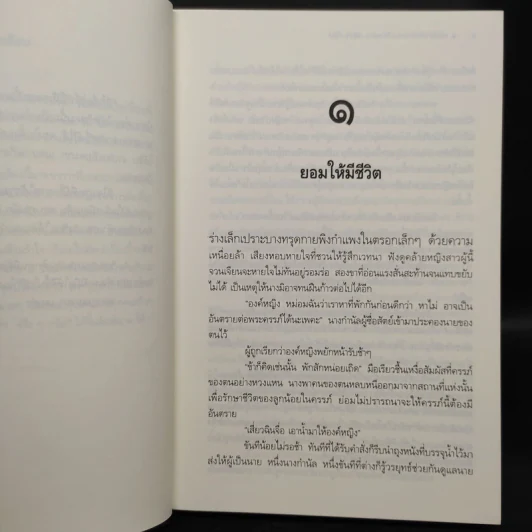 ๑
ยอมให้มีชีวิต
ร่างเล็กเปราะบางทรุดกายพิงกำแพงในตรอกเล็กๆ ด้วยความ
เหนื่อยล้า เสียงหอบหายใจที่ชวนให้รู้สึกเวทนา ฟังดูคล้ายหญิงสาวผู้นี้
จวนเจียนจะหายใจไม่ทันอยู่รอมร่อ สองขาที่อ่อนแรงสั่นสะท้านจนแทบขยับ
ไม่ได้ เป็นเหตุให้นางมิอาจทนฝืนก้าวต่อไปได้อีก
"องค์หญิง หม่อมฉันว่าเราหาที่พักกันก่อนดีกว่า หาไม่ อาจเป็น
อันตรายต่อพระครรภ์ได้นะเพคะ" นางกำนัลผู้ซื่อสัตย์เข้ามาประคองนายของ
ตนไว้
ผู้ถูกเรียกว่าองค์หญิงพยักหน้ารับช้าๆ
"ข้าก็คิดเช่นนั้น พักสักหน่อยเถิด" มือเรียวชื้นเหงื่อสัมผัสที่ครรภ์
ของตนอย่างหวงแหน นางพาคนของตนหลบหนีออกมาจากสถานที่แห่งนั้น
เพื่อรักษาชีวิตของลูกน้อยในครรภ์ ย่อมไม่ปรารถนาจะให้ครรภ์นี้ต้องมี
อันตราย
"เสี่ยวฉินจื่อ เอาน้ำมาให้องค์หญิง"
ขันทีน้อยไม่รอช้า ทันทีที่ได้รับคำสั่งก็รีบนำถุงหนังที่บรรจุน้ำไว้มา
ส่งให้ผู้เป็นนาย หนึ่งนางกำนัล หนึ่งขันทีที่ต่างก็รู้วรยุทธ์ช่วยกันดูแลนาย